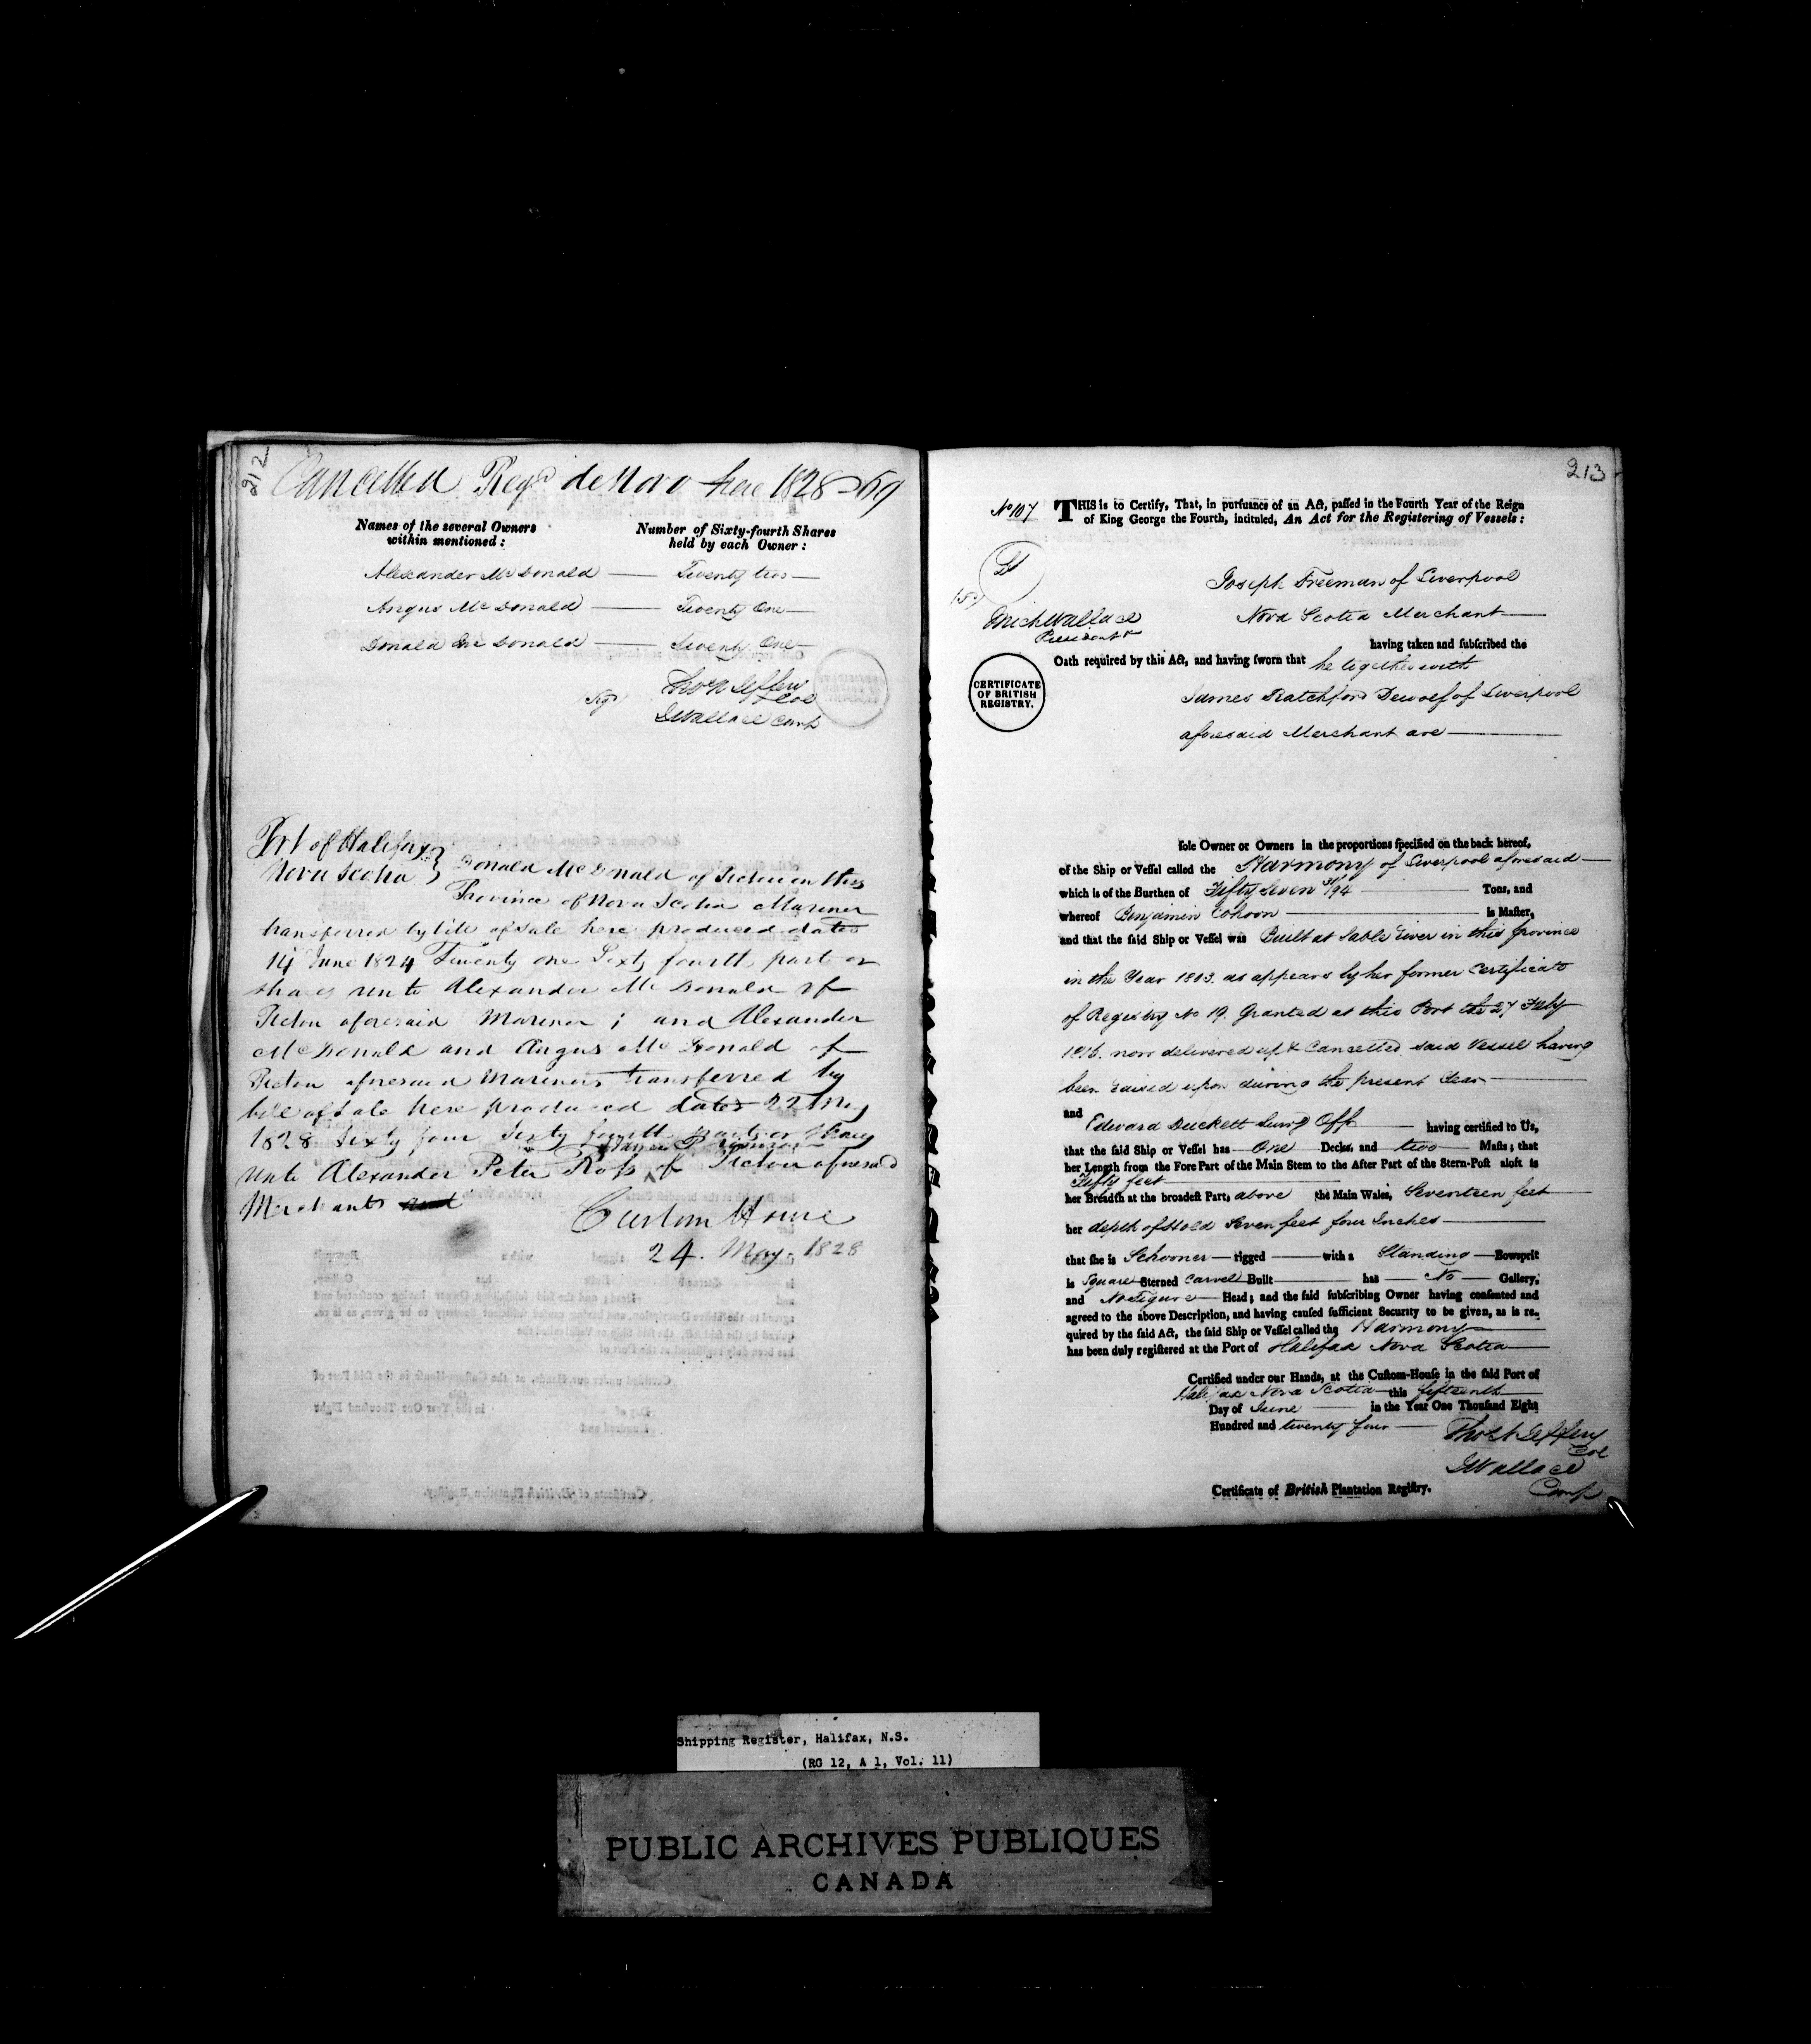 212
Cancelled Regd de Novo here 1828 69
Names of the several Owners within mentioned :
Number of Sixty-fourth Shares held by each Owner :
Alexander McDonald — Twenty two —
Angus McDonald — Twenty One —
Donald McDonald — Twenty One —
Sigd
Thos N Jeffery
Col
JWallace Comp
Port of Halifax }
Nova Scotia } Donald McDonald of Pictou in this
Province of Nova Scotia Mariner
transferred by bill of sale here produced dated
14 June 1824 Twenty one Sixty fourth parts or
shares unto Alexander McDonald of
Pictou aforesaid Mariner ; and Alexander
McDonald and Angus McDonald of
Pictou aforesaid Mariners transferred by
bill of sale here produced dated 22 May
1828 Sixty four Sixty fourth parts or shares
unto Alexander Peter Ross of Pictou aforesaid
Merchants and
Custom House
24. May. 1828
213
No 107
THIS is to Certify, That, in pursuance of an Act, passed in the Fourth Year of the Reign
of King George the Fourth, intituled, An Act for the Registering of Vessels :
Joseph Freeman of Liverpool
Nova Scotia Merchant —
MichWallace
President
having taken and subscribed the
Oath required by this Act, and having sworn that he together with
CERTIFICATE
OF BRITISH
REGISTRY.
James Ratchford Dewolf of Liverpool
aforesaid Merchant are —
sole Owner or Owners in the proportions specified on the back hereof,
of the Ship or Vessel called the Harmony of Liverpool aforesaid —
which is of the Burthen of Fifty Seven /94 — Tons, and
whereof Benjamin Cohoon — is Master,
and that the said Ship or Vessel was Built at Sable River in this province
in the Year 1803. as appears by her former Certificate
of Registry No 19. Granted at this Port the 27 Feby
1816. now delivered up & Cancelled said Vessel having
been raised upon during the present Year —
and Edward Duckett Survg Offr — having certified to Us,
that the said Ship or Vessel has — One — Decks, and — two — Masts ; that
her Length from the Fore Part of the Main Stem to the After Part of the Stern-Post aloft is
Fifty feet —
her Breadth at the broadest Part, above the Main Wales, Seventeen feet —
her depth of Hold Seven feet four Inches —
that she is Schooner — rigged — with a Standing — Bowsprit
is Square Sterned Carvel Built — has — No — Gallery,
and No Figure — Head ; and the said subscribing Owner having consented and
agreed to the above Description, and having caused sufficient Security to be given, as is re-
quired by the said Act, the said Ship or Vessel called the Harmony —
has been duly registered at the Port of Halifax Nova Scotia —
Certified under our Hands, at the Custom-House in the said Port of
Halifax Nova Scotia — this fifteenth
Day of June — in the Year One Thousand Eight
Hundred and twenty four —
Thos N Jeffery
Col
JWallace
Comp
Certificate of British Plantation Registry.
Shipping Register, Halifax, N.S.
(RG 12, A 1, Vol. 11)
PUBLIC ARCHIVES PUBLIQUES
CANADA